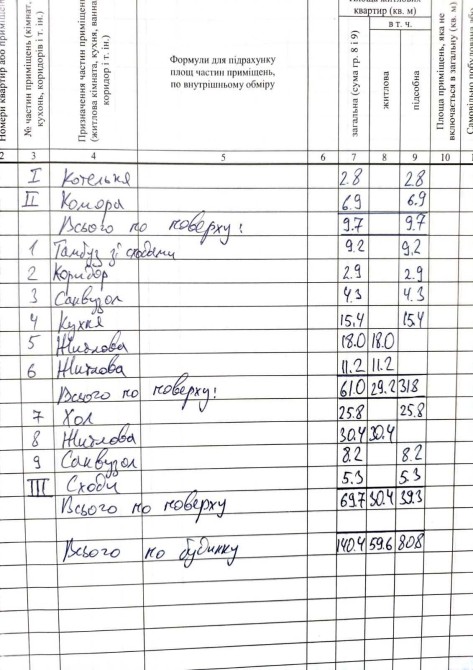 Номери квартир або приміщень
№ частин приміщень (кімнат, кухонь, коридорів і т. ін.)
Призначення частин приміщень (житлова кімната, кухня, ванна, коридор і т. ін.)
Формули для підрахунку
площ частин приміщень,
по внутрішньому обміру
квартир (кв. м)
в т. ч.
загальна (сума гр. 8 і 9)
житлова
підсобна
Площа приміщень, яка не включається в загальну (кв. м)
2 3 4 5 6 7 8 9 10
I Котельня 2.8 2.8
II Комора 6.9 6.9
Всього по поверху: 9.7 9.7
1 Тамбуз зі сходами 9.2 9.2
2 Коридор 2.9 2.9
3 Санвузол 4.3 4.3
4 Кухня 15.4 15.4
5 Житлова 18.0 18.0
6 Житлова 11.2 11.2
Всього по поверху: 61.0 29.2 31.8
7 Хол 25.8 25.8
8 Житлова 30.4 30.4
9 Санвузол 8.2 8.2
III Сходи 5.3 5.3
Всього по поверху 69.7 30.4 39.3
Всього по будинку 140.4 59.6 80.8